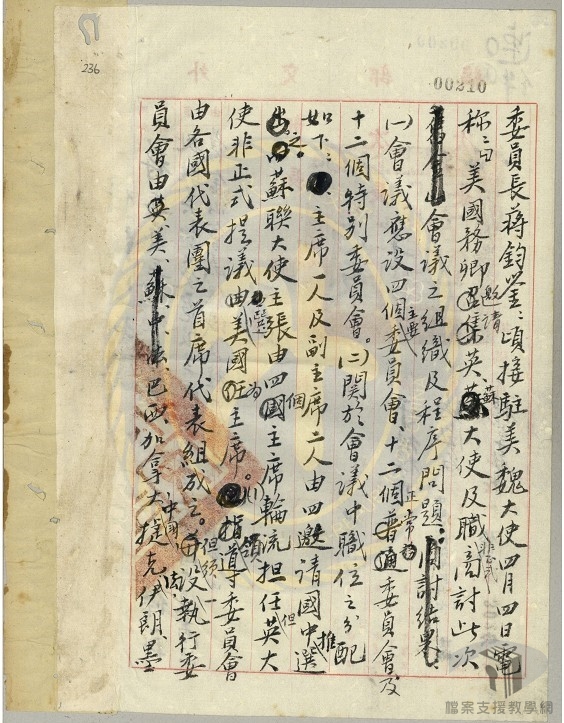 17
236
00210
外交部
委員長蔣鈞鑒：頃接駐美魏大使四月四日電
稱：美國務卿邀請英、蘇大使及職非正式商討此次
會議之組織及程序問題：商討結果：
(一)會議應設四個主要委員會、十二個普通委員會及
十二個特別委員會。(二)關於會議中職位之分配
如下：主席一人及副主席二人由四邀請國中推選
之。蘇聯大使主張由四個國主席輪流担任但英大
使非正式提議選美國為主席。(1)指導委員會
由各國代表團之首席代表組成之。但須設執行委
員會由英、美、蘇、中國、法、巴西、加拿大、捷克、伊朗、墨
檔案支援教學網